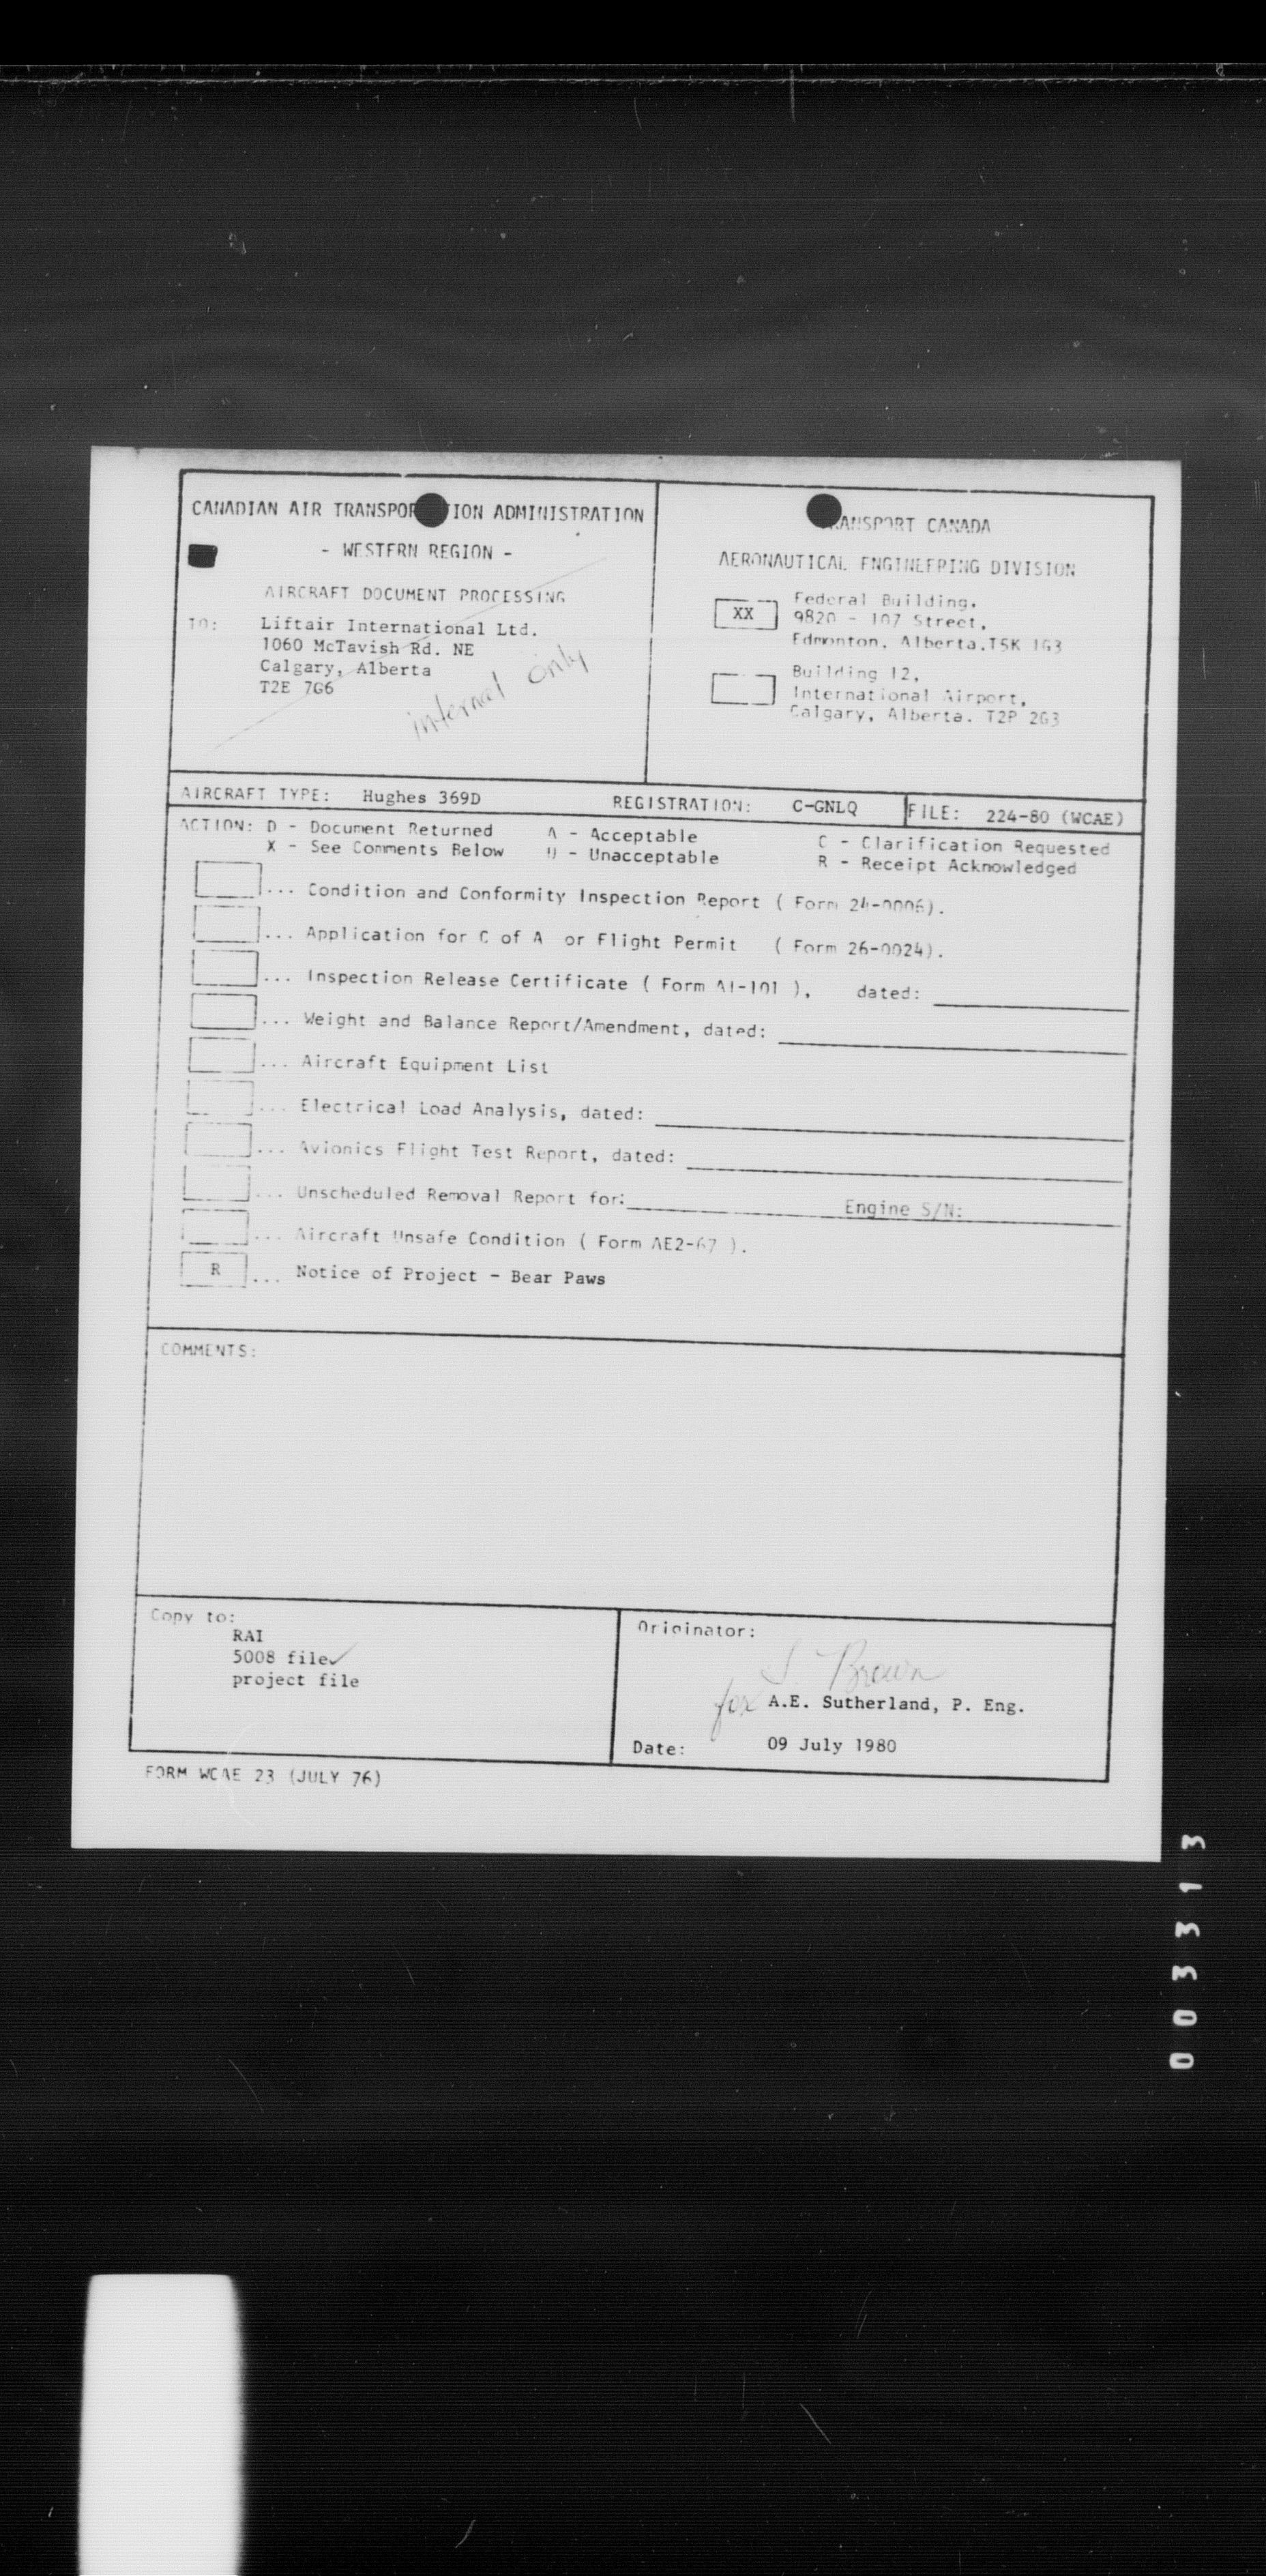 CANADIAN AIR TRANSPOR ION ADMINISTRATION
- WESTERN REGION -
AIRCRAFT DOCUMENT PROCESSING
TO: Liftair International Ltd.
1060 McTavish Rd. NE
Calgary, Alberta
T2E 7G6
internal only
RANSPORT CANADA
AERONAUTICAL ENGINEERING DIVISION
XX Federal Building,
9820 - 107 Street,
Edmonton, Alberta.T5K 1G3
Building 12,
International Airport,
Calgary, Alberta. T2P 2G3
AIRCRAFT TYPE: Hughes 369D REGISTRATION: C-GNLQ FILE: 224-80 (WCAE)
ACTION: D - Document Returned A - Acceptable C - Clarification Requested
X - See Comments Below U - Unacceptable R - Receipt Acknowledged
... Condition and Conformity Inspection Report ( Form 24-0006).
... Application for C of A or Flight Permit ( Form 26-0024).
... Inspection Release Certificate ( Form AI-101 ), dated:
... Weight and Balance Report/Amendment, dated:
... Aircraft Equipment List
... Electrical Load Analysis, dated:
... Avionics Flight Test Report, dated:
... Unscheduled Removal Report for: Engine S/N:
... Aircraft Unsafe Condition ( Form AE2-67 ).
R ... Notice of Project - Bear Paws
COMMENTS:
Copy to:
RAI
5008 file✓
project file
Originator:
J. Brown
for A.E. Sutherland, P. Eng.
Date: 09 July 1980
FORM WCAE 23 (JULY 76)
003313